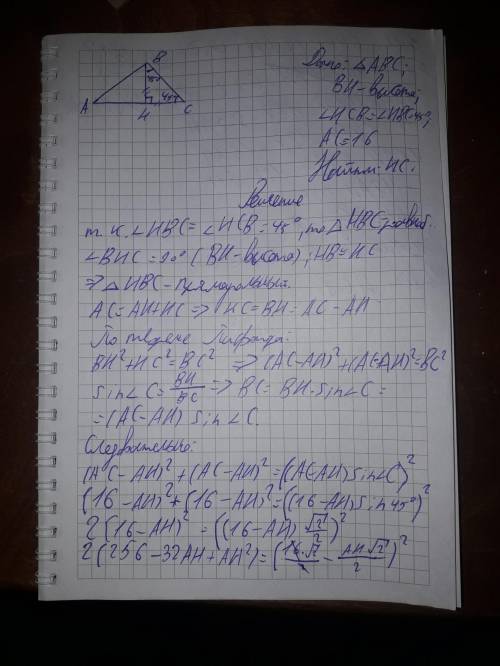 B
45°
A
H
45°
C
Дано: △ABC;
BH-высота;
∠HCB=∠HBC=45°;
AC=16
Найти: HC.
Решение
т.к. ∠HBC=∠HCB=45°, то △HBC-равноб.
∠BHC=90° (BH-высота); HB=HC
⇒ △HBC-прямоугольный.
AC=AH+HC ⇒ HC=BH=AC-AH
По теореме Пифагора:
BH²+HC²=BC² ⇒ (AC-AH)²+(AC-AH)²=BC²
sin∠C=BH/BC ⇒ BC=BH·sin∠C=
=(AC-AH) sin∠C.
Следовательно:
(AC-AH)²+(AC-AH)²=((AC-AH)sin∠C)²
(16-AH)²+(16-AH)²=((16-AH)sin45°)²
2(16-AH)²=((16-AH) √2/2)²
2(256-32AH+AH²)=(16·√2/2 - AH·√2/2)²